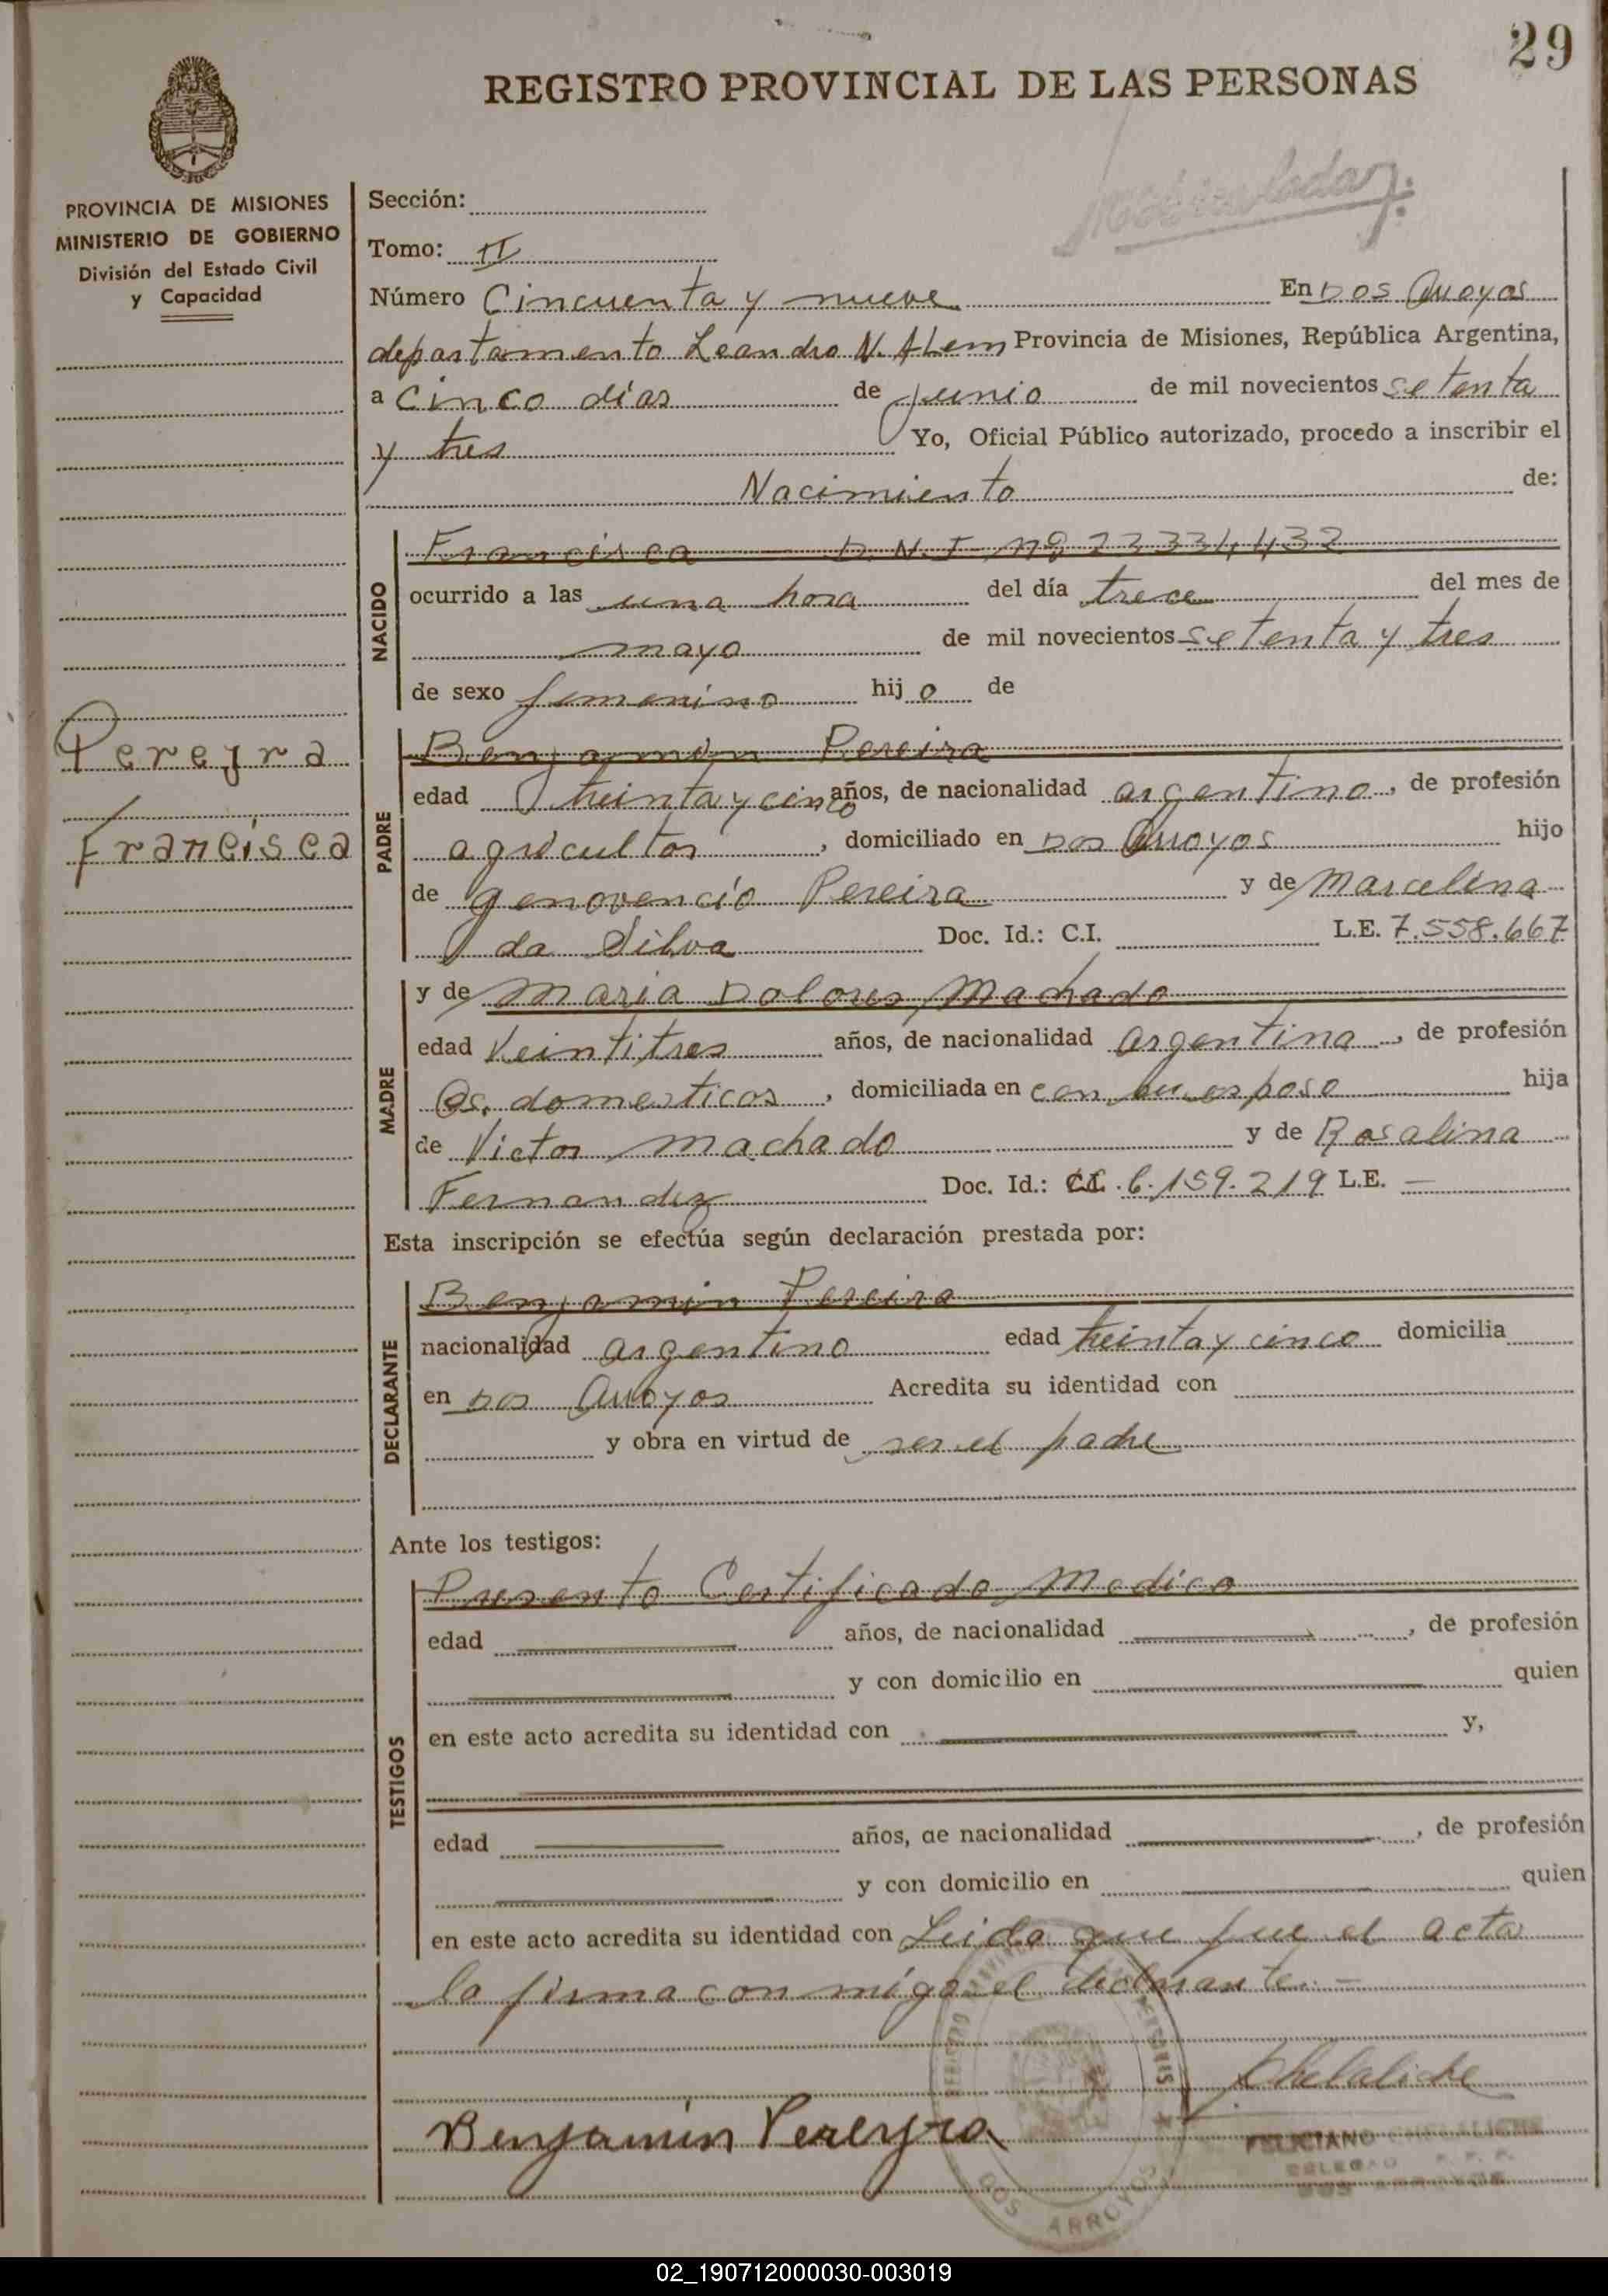 29
REGISTRO PROVINCIAL DE LAS PERSONAS
PROVINCIA DE MISIONES
MINISTERIO DE GOBIERNO
División del Estado Civil
y Capacidad
Sección:
Tomo: II
Número Cincuenta y nueve En Dos Arroyos
departamento Leandro N. Alem Provincia de Misiones, República Argentina,
a cinco días de junio de mil novecientos setenta
y tres Yo, Oficial Público autorizado, procedo a inscribir el
Nacimiento de:
NACIDO
Francisca D.N.I Nº
ocurrido a las una hora del día trece del mes de
mayo de mil novecientos setenta y tres
de sexo femenino hijo de
Pereyra
Francisca
PADRE
Benjamin Pereira
edad treinta y cinco años, de nacionalidad argentino, de profesión
agricultor, domiciliado en Dos Arroyos hijo
de genovencio Pereira y de Marcelina
da Silva Doc. Id.: C.I. L.E. 7.558.667
MADRE
y de Maria Dolores Machado
edad Veintitres años, de nacionalidad argentina, de profesión
Qs. domesticos, domiciliada en con su esposo hija
de Victor Machado y de Rosalina
Fernandez Doc. Id.: C.I. 6.159.219 L.E. —
Esta inscripción se efectúa según declaración prestada por:
DECLARANTE
Benjamin Pereira
nacionalidad argentino edad treinta y cinco domicilia
en Dos Arroyos Acredita su identidad con
y obra en virtud de ser el padre
Ante los testigos:
TESTIGOS
Presento Certificado Medico
edad años, de nacionalidad , de profesión
y con domicilio en quien
en este acto acredita su identidad con y,
edad años, de nacionalidad , de profesión
y con domicilio en quien
en este acto acredita su identidad con Leida que fue el acta
la firma con migo el declarante. —
Benjamin Pereyra
FELICIANO
DOS ARROYOS
02_190712000030-003019